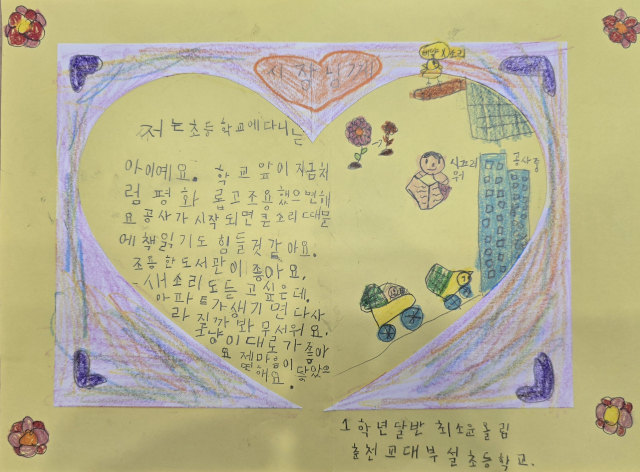 시장님께
저는 초등학교에 다니는
아이예요. 학교 앞이 지금처
럼 평화롭고 조용했으면해
요 공사가 시작되면 큰 소리 때문
에 책 읽기도 힘들것 같아요.
조용한 도서관이 좋아요.
새소리도 듣고싶은데,
아파트가 생기면 다 사
라질까 봐 무서워요.
그냥 이대로가 좋아
요 제 마음이 닿았으
면해요.
시끄러
워
공사중
1학년 달반 최소윤 올림
춘천교대부설초등학교.